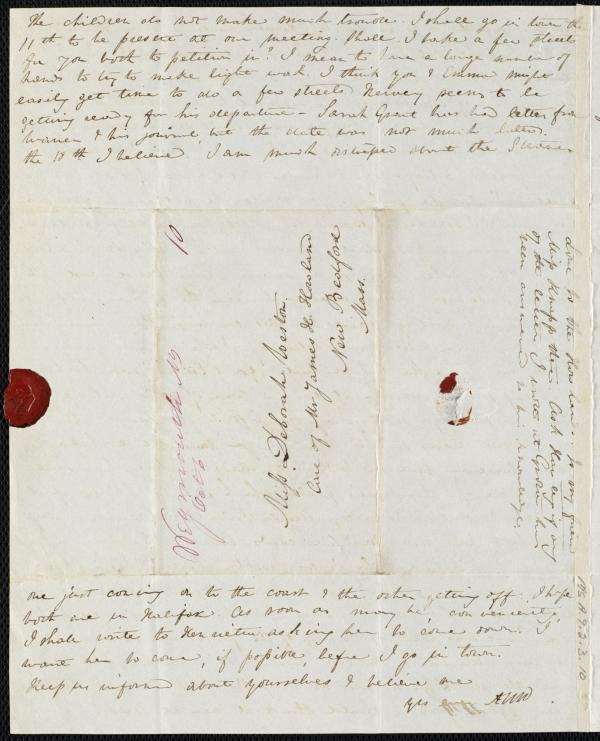 The children do not make much trouble. I shall go in town the
11th to be present at our meeting. Shall I take a few streets
for you both to petition in? I mean to have a large number of
hands to try to make light work. I think you & Emma might
easily get time to do a few streets. Hervey seems to be
getting ready for his departure - Sarah Grant has had letter from
Warren & his journal, but the date was not much later.
the 18th I believe I am much distressed about the Steamer
10
Weymouth Ms
Oct 6
Miss Deborah Weston.
Care of Mr James H. Howland
New Bedford
Mass.
Love to the Howlands. to my friend
Miss Knapp then Ask Hervey if any
of the letters I wrote at
been answered to his knowledge.
Ms A.9.2.3.10
one just coming on to the coast & the other getting off. I hope
both are in Halifax. As soon as may be, conveniently,
I shall write to Henrietta asking her to come down. I
want her to come, if possible, before I go in town.
Keep us informed about yourselves & believe me
yrs AWW.